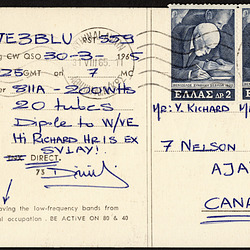 VE3BLU RST 559
CW QSO 30-3- 1965
GMT on 7 MC
811A - 200WTS
20 tubes
Diple to W/VE
Hi Richard Hr is ex
SV1AY!
DIRECT.
73
ving the low-frequency bands from
al occupation. BE ACTIVE ON 80 & 40
ΕΛΛΑΣ ΔΡ 2
ΕΛΛΑΣ
Mr: Y. Richard
7 Nelson
AJA
CANA